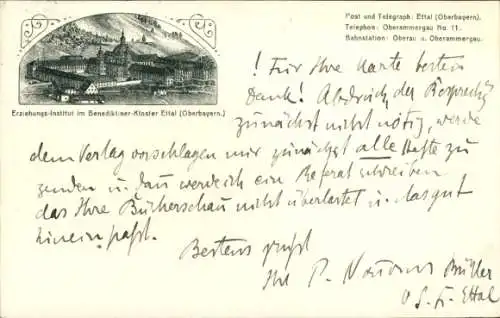 Post und Telegraph: Ettal (Oberbayern).
Telephon: Oberammergau No. 11.
Bahnstation: Oberau u. Oberammergau.
Erziehungs-Institut im Benediktiner-Kloster Ettal (Oberbayern.)
! Für Ihre Karte besten
Dank! Abdruck der Besprechg
zunächst nicht nötig, werde
dem Verlag vorschlagen mir zunächst alle Hefte zu
senden u. dann werde ich ein Referat schreiben
das Ihre Bücherschau nicht überlastet u. das gut
hinein paßt.
Bestens grüßt
Ihr P. Müller
O.S.B. Ettal